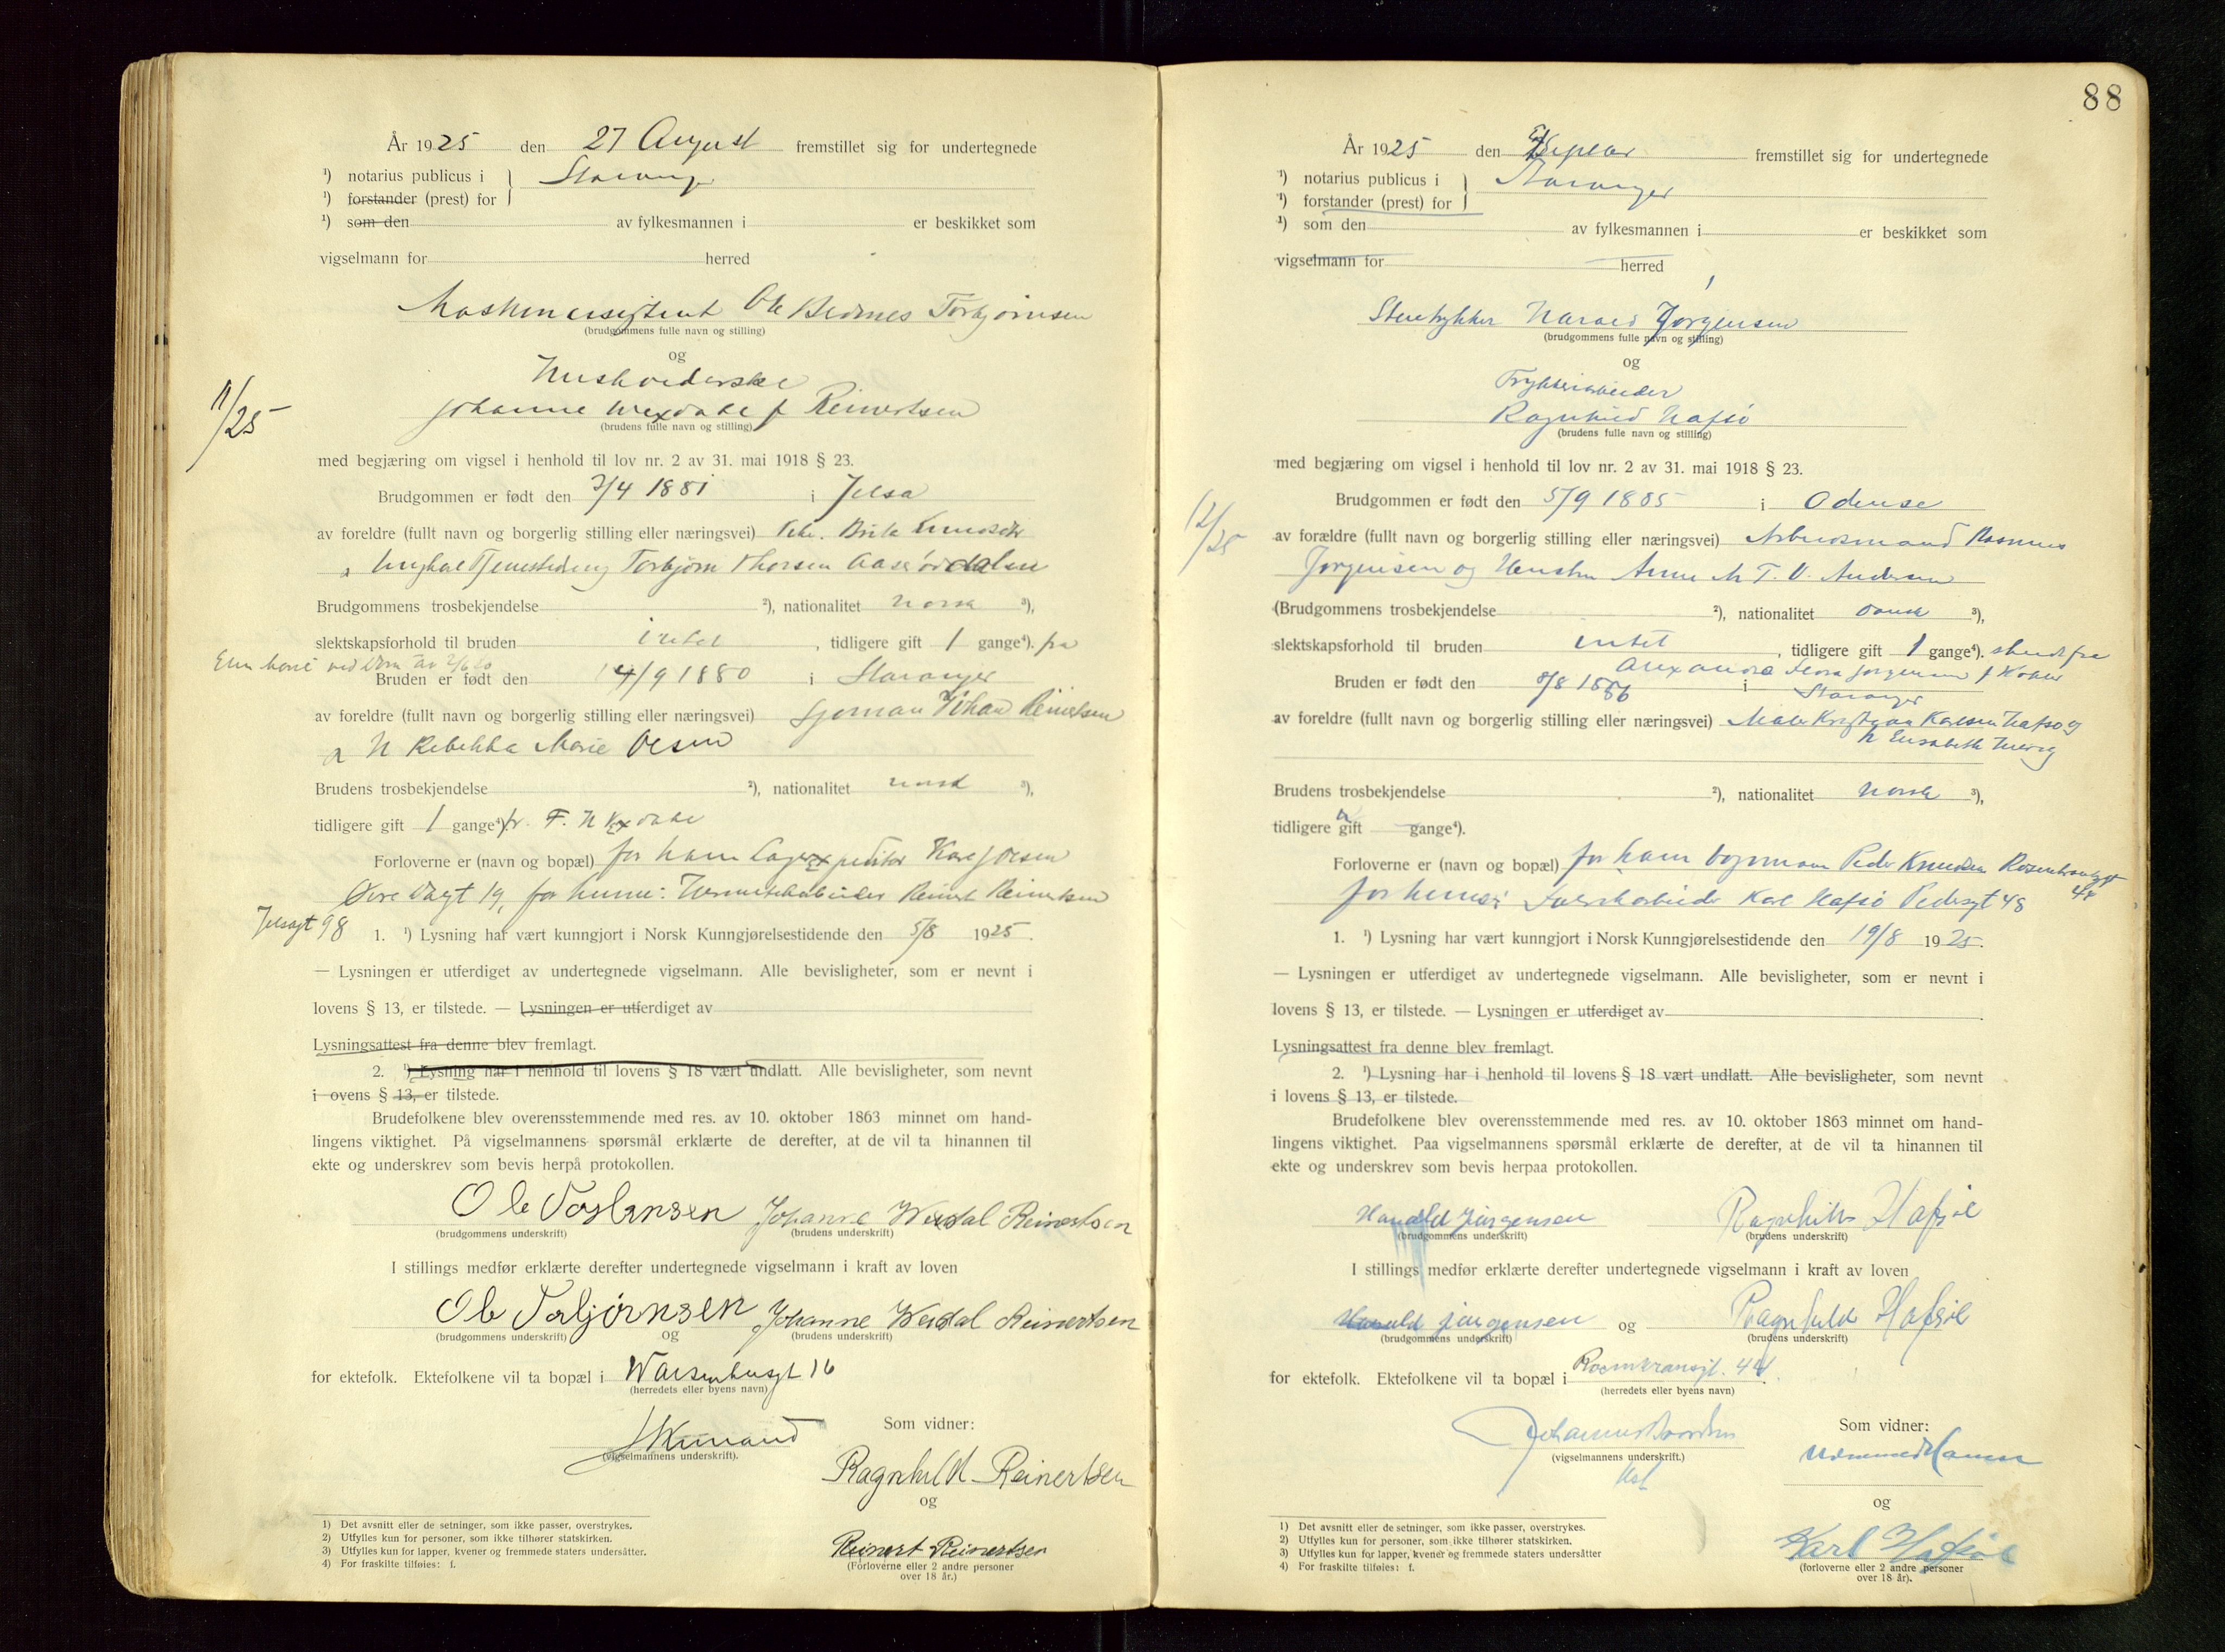 År 1925 den 27 August fremstillet sig for undertegnede
¹) notarius publicus i } Stavanger
¹) forstander (prest) for
¹) som den av fylkesmannen i er beskikket som
vigselmann for herred
Maskinassistent Ole Torbjørnsen
(brudgommens fulle navn og stilling)
og
Husholderske
Johanne f Reinertsen
(brudens fulle navn og stilling)
11/25
med begjæring om vigsel i henhold til lov nr. 2 av 31. mai 1918 § 23.
Brudgommen er født den 3/4 1881 i Jelsa
av foreldre (fullt navn og borgerlig stilling eller næringsvei) Brita Knudsdtr
Ungkar Torbjørn Thorsen
Brudgommens trosbekjendelse ²), nationalitet norsk ³),
slektskapsforhold til bruden intet , tidligere gift 1 gange⁴). fra
ved dom av
Bruden er født den 14/9 1880 i Stavanger
av foreldre (fullt navn og borgerlig stilling eller næringsvei) Sjøman Johan Reinertsen
og H Rebekka Marie Olsen
Brudens trosbekjendelse ²), nationalitet norsk ³),
tidligere gift 1 gange⁴). fr. F. H
Forloverne er (navn og bopæl) for ham Lagerexpeditør Karl Olsen
Øvre Dagt 19, for henne: Hermetikarbeider Reinert Reinertsen
Jelsagt 98
1. ¹) Lysning har vært kunngjort i Norsk Kunngjørelsestidende den 5/8 1925.
— Lysningen er utferdiget av undertegnede vigselmann. Alle bevisligheter, som er nevnt i
lovens § 13, er tilstede. — Lysningen er utferdiget av
Lysningsattest fra denne blev fremlagt.
2. ¹) Lysning har i henhold til lovens § 18 vært undlatt. Alle bevisligheter, som nevnt
i ovens § 13, er tilstede.
Brudefolkene blev overensstemmende med res. av 10. oktober 1863 minnet om hand-
lingens viktighet. På vigselmannens spørsmål erklærte de derefter, at de vil ta hinannen til
ekte og underskrev som bevis herpå protokollen.
Ole Johanne Reinertsen
(brudgommens underskrift) (brudens underskrift)
I stillings medfør erklærte derefter undertegnede vigselmann i kraft av loven
Ole Torbjørnsen Johanne Reinertsen
(brudgommens underskrift) og (brudens underskrift)
for ektefolk. Ektefolkene vil ta bopæl i 16
(herredets eller byens navn)
(vigselmannens underskrift).
Som vidner:
Ragnhild Reinertsen
og
Reinert Reinertsen
(Forloverne eller 2 andre personer
over 18 år.)
1) Det avsnitt eller de setninger, som ikke passer, overstrykes.
2) Utfylles kun for personer, som ikke tilhører statskirken.
3) Utfylles kun for lapper, kvener og fremmede staters undersåtter.
4) For fraskilte tilføies: f.
88
År 1925 den Septbr fremstillet sig for undertegnede
¹) notarius publicus i } Stavanger
¹) forstander (prest) for
¹) som den av fylkesmannen i er beskikket som
vigselmann for herred
Stentrykker Harald Jørgensen
(brudgommens fulle navn og stilling)
og
Trykkeriarbeider
Ragnhild Hafsö
(brudens fulle navn og stilling)
12/25
med begjæring om vigsel i henhold til lov nr. 2 av 31. mai 1918 § 23.
Brudgommen er født den 5/9 1885 i Odense
av forældre (fullt navn og borgerlig stilling eller næringsvei) Arbeidsmand Rasmus
Jørgensen og Hustru Anne M T. V. Andersen
(Brudgommens trosbekjendelse ²), nationalitet dansk ³),
slektskapsforhold til bruden intet , tidligere gift 1 gange⁴). skilt fra
Alexandra Jørgensen f
Bruden er født den 8/8 1886 i Stavanger
av foreldre (fullt navn og borgerlig stilling eller næringsvei) Maler Karlsen Hafsö og
h Elisabeth
Brudens trosbekjendelse ²), nationalitet norsk ³),
tidligere gift gange⁴).
Forloverne er (navn og bopæl) for ham Peder Knudsen Rosenkransgt
44
for henne: Karl Hafsö Pedersgt 48
1. ¹) Lysning har vært kunngjort i Norsk Kunngjørelsestidende den 19/8 1925.
— Lysningen er utferdiget av undertegnede vigselmann. Alle bevisligheter, som er nevnt i
lovens § 13, er tilstede. — Lysningen er utferdiget av
Lysningsattest fra denne blev fremlagt.
2. ¹) Lysning har i henhold til lovens § 18 vært undlatt. Alle bevisligheter, som nevnt
i lovens § 13, er tilstede.
Brudefolkene blev overensstemmende med res. av 10. oktober 1863 minnet om hand-
lingens viktighet. Paa vigselmannens spørsmål erklærte de derefter, at de vil ta hinannen til
ekte og underskrev som bevis herpaa protokollen.
Harald Jørgensen Ragnhild Hafsöe
(brudgommens underskrift) (brudens underskrift)
I stillings medfør erklærte derefter undertegnede vigselmann i kraft av loven
Harald Jørgensen og Ragnhild Hafsöe
(brudgommens underskrift) (brudens underskrift)
for ektefolk. Ektefolkene vil ta bopæl i Rosenkransgt. 44.
(herredets eller byens navn)
Johannes
(vigselmannens underskrift.)
Som vidner:
og
Karl Hafsöe
(forloverne eller 2 andre personer
over 18 år).
1) Det avsnitt eller de setninger, som ikke passer, overstrykes.
2) Utfylles kun for personer, som ikke tilhører statskirken.
3) Utfylles kun for lapper, kvener og fremmede staters undersåtter
4) For fraskilte tilføles: f.